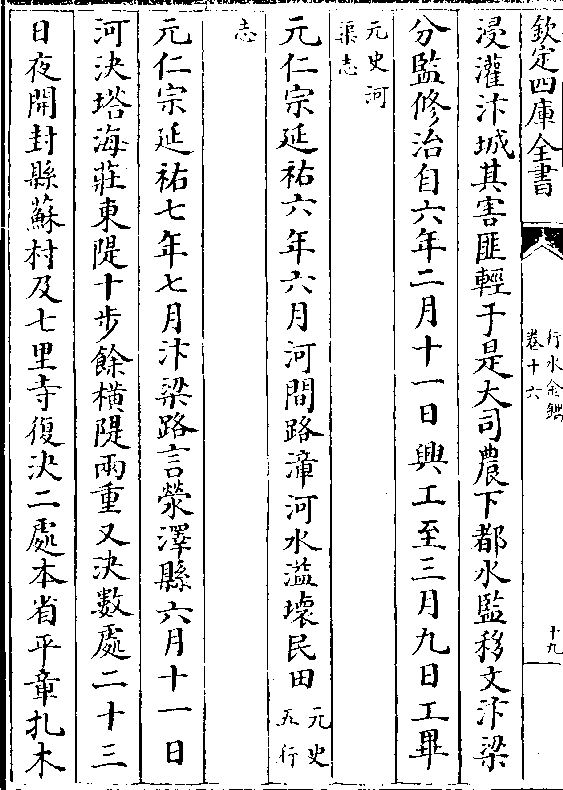 欽定四庫全書
行水金鑑
卷十六
十九
浸灌汴城其害匪輕于是大司農下都水監移文汴梁
分監修治自六年二月十一日興工至三月九日工畢
元史河
渠志
元仁宗延祐六年六月河間路漳河水溢壞民田元史
五行
志
元仁宗延祐七年七月汴梁路言滎澤縣六月十一日
河決塔海莊東隄十步餘橫隄兩重又決數處二十三
日夜開封縣蘇村及七里寺復決二處本省平章扎木